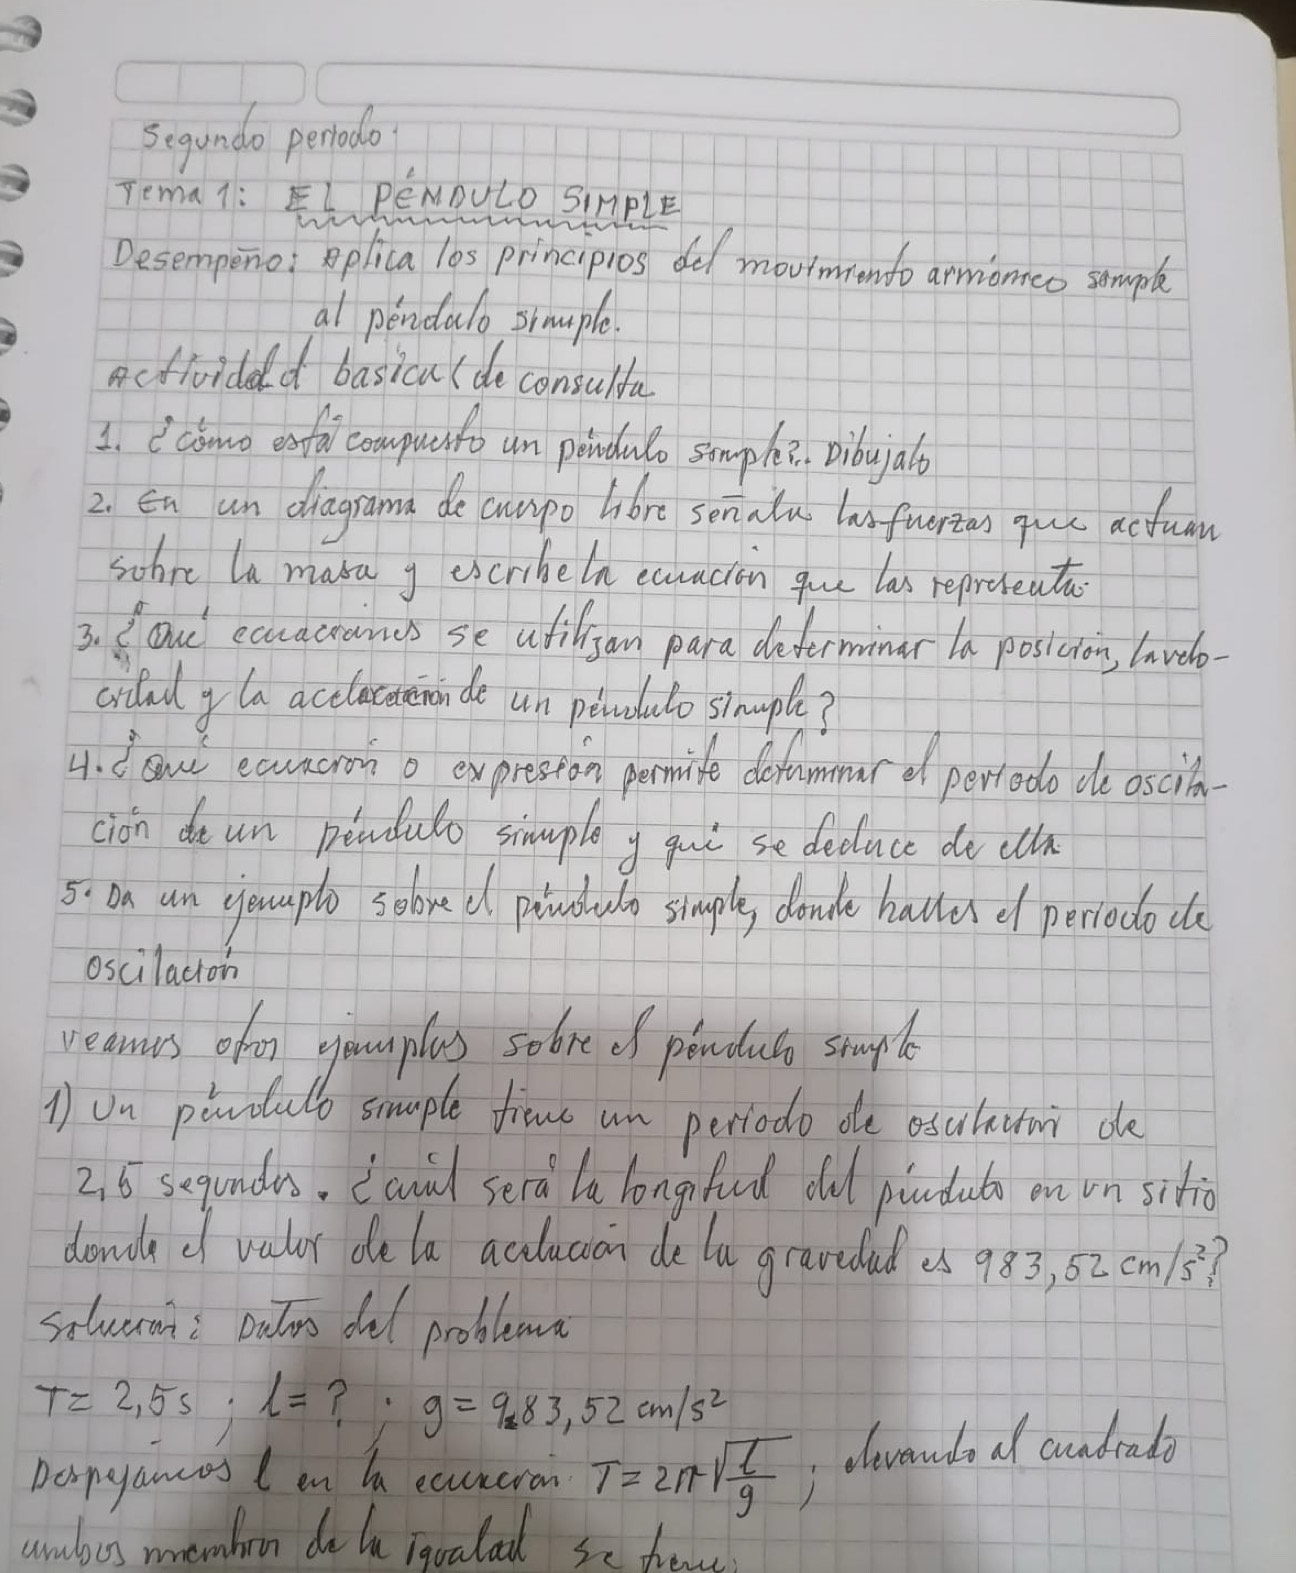 Segundo periodo:
Tema 1: EL PÉNDULO SIMPLE
Desempeño: Aplica los principios del movimiento armónico simple
al péndulo simple.
Actividad basica (de consulta
1. ¿cómo está compuesto un péndulo simple?. Dibujalo
2. En un diagrama de cuerpo libre señala las fuerzas que actuan
sobre la masa y escribe la ecuación que las representa.
3. ¿Qué ecuaciones se utilizan para determinar la posición, la velo-
cidad y la aceleración de un péndulo simple?
4. ¿Qué ecuación o expresión permite determinar el periodo de oscila-
ción de un péndulo simple y qué se deduce de ella
5. Da un ejemplo sobre el péndulo simple, donde halles el periodo de
oscilación
veamos otros ejemplos sobre el péndulo simple
1) Un péndulo simple tiene un periodo de oscilación de
2,5 segundos. ¿cuál será la longitud del péndulo en un sitio
donde el valor de la acelación de la gravedad es 983,52 cm/s²?
Solución: Datos del problema
T= 2,5s ; l= ? ; g= 983,52 cm/s²
Despejamos l en la ecuación T= 2π√(l/g) ; elevando al cuadrado
ambos miembros de la igualdad se tiene: